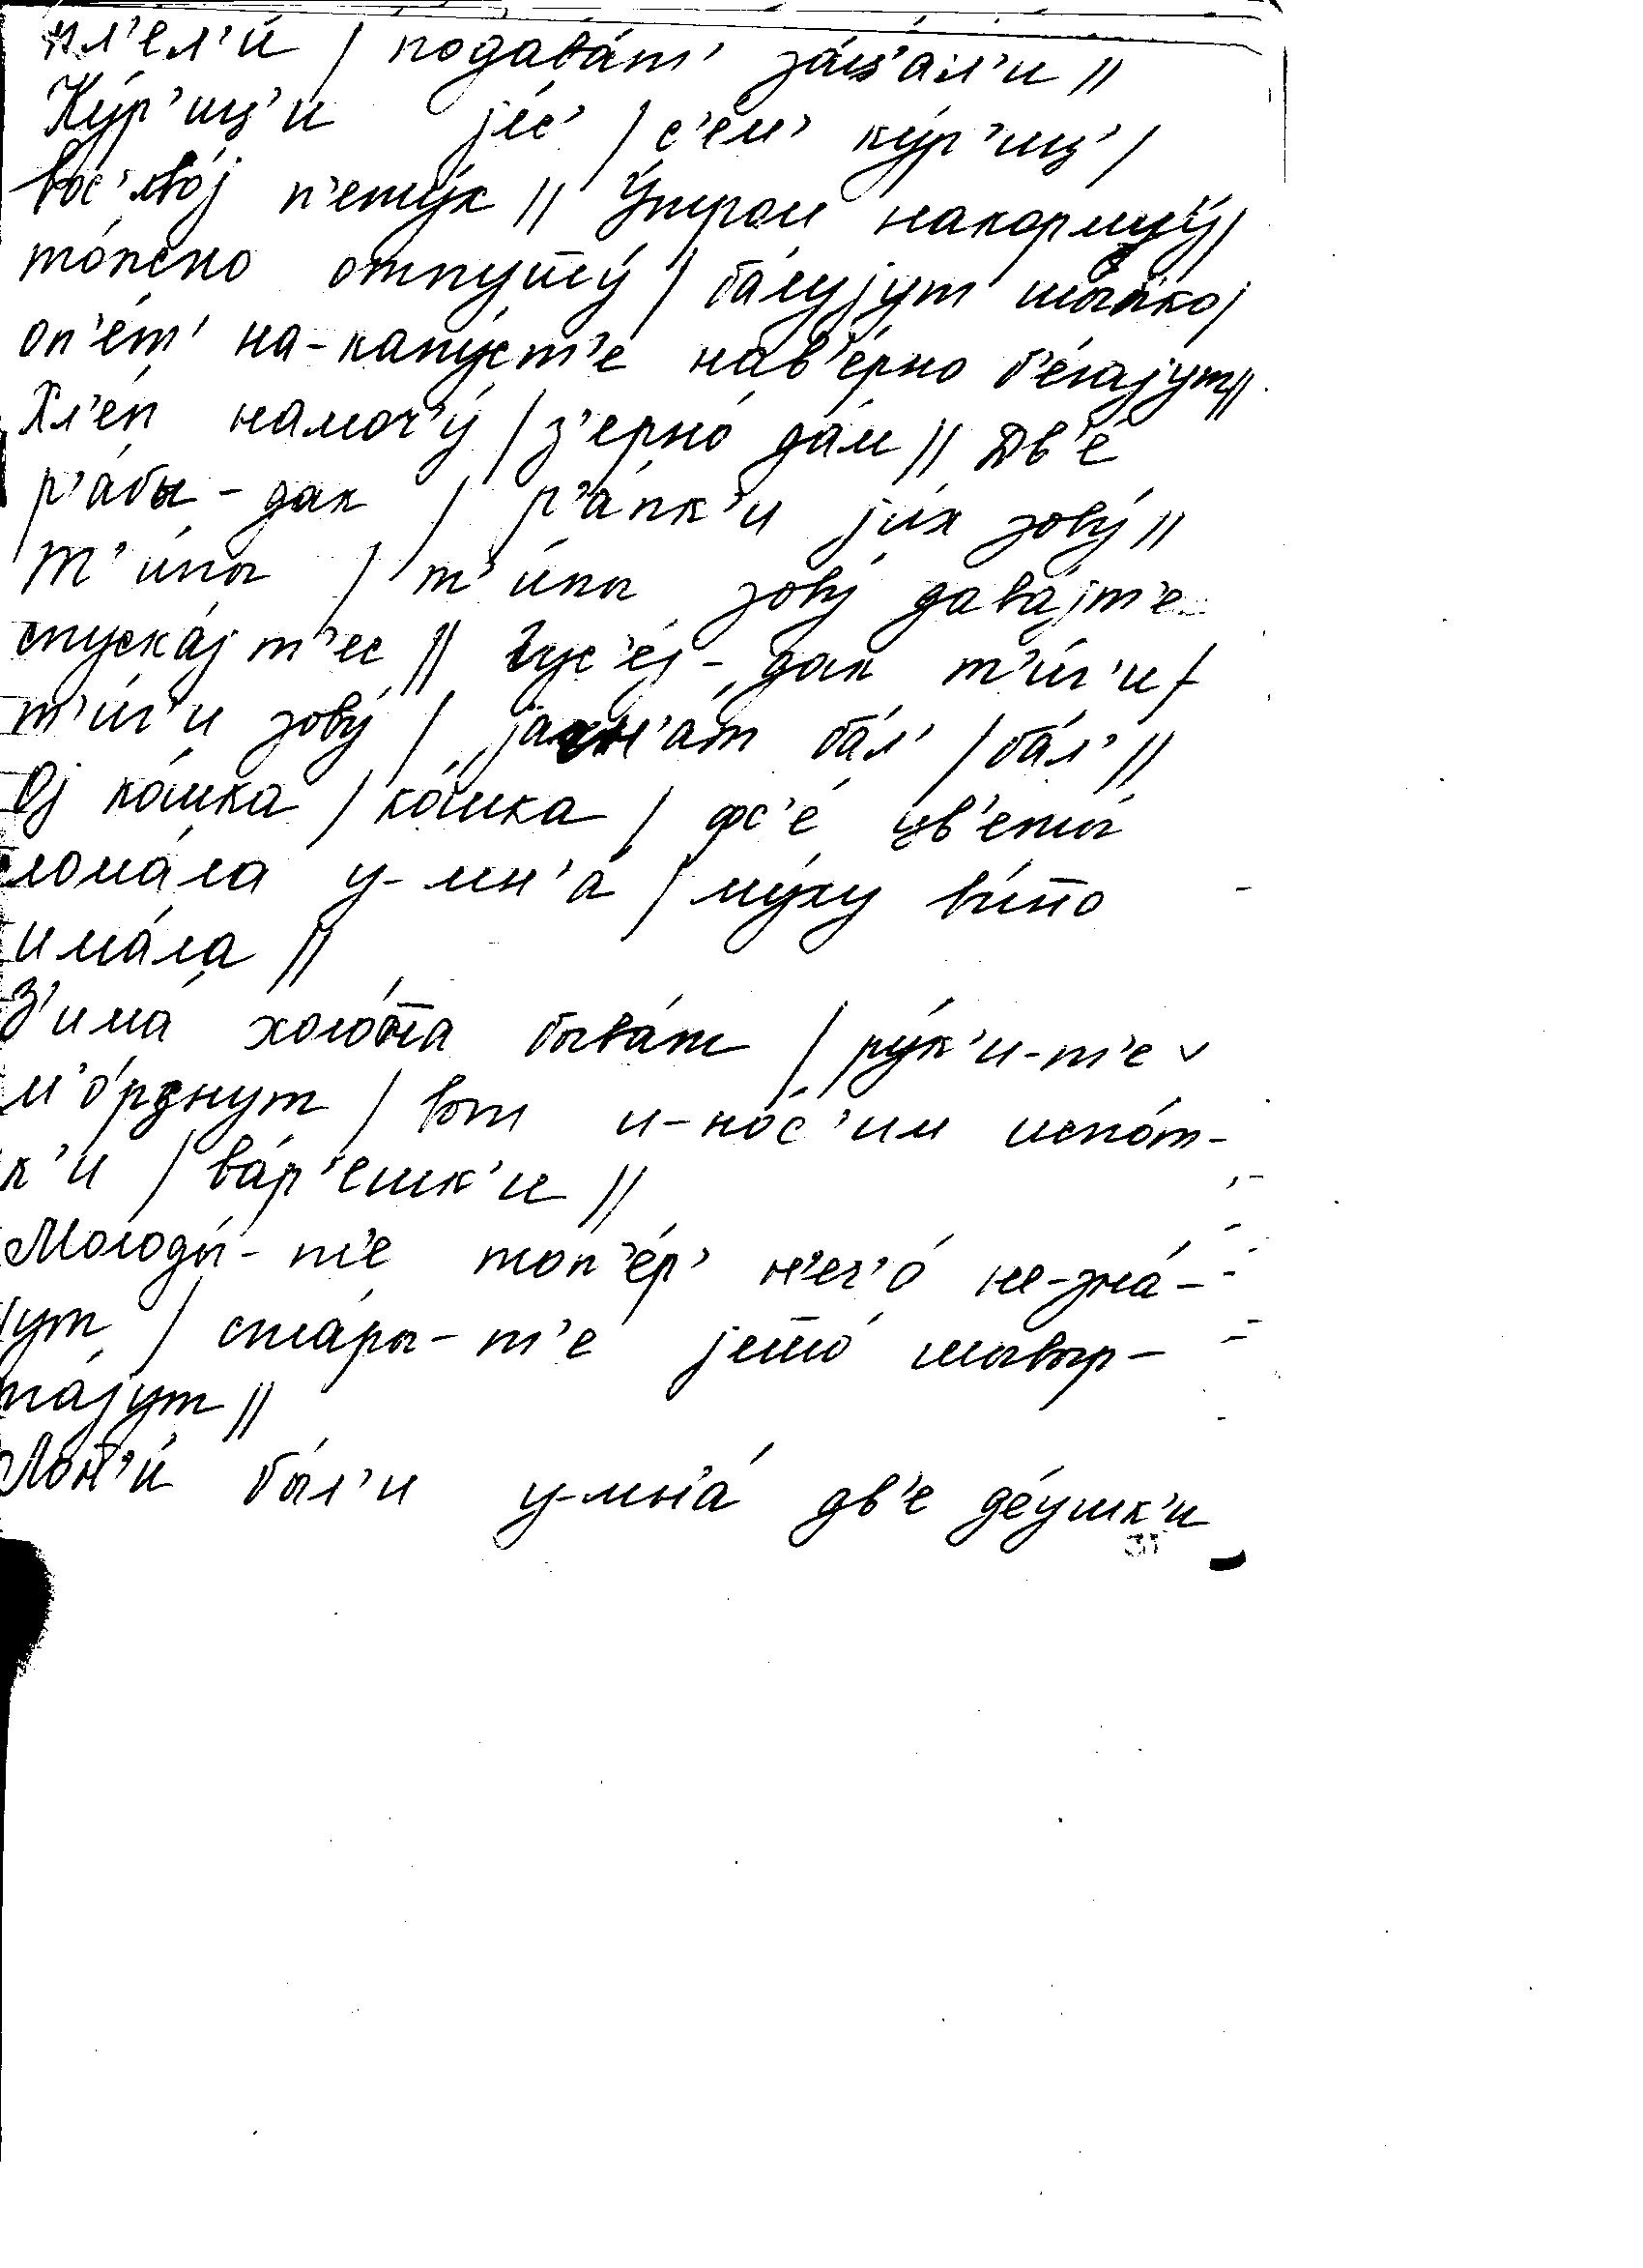 пл'ел'и́ / подава́т' за́ц'ал'и //
Ку́р'иц'и је́с' / с'е́м' ку́р'иц' /
вос'мо́ј п'ету́х // У́тром накормл'у́ /
то́пено отпушшу́ / ба́лујут шы́пко /
оп'е́т' на-капу́ст'е нав'е́рно б'е́гајут //
Хл'е́п намоч'у́ / з'ерно́ да́м // Дв'е́
р'а́бы-дак / р'а́пк'и ји́х зову́ //
Т'и́пы / т'и́пы зову́ дава́јт'е
спуска́јт'ес // Гус'е́ј-дак т'и́г'и /
т'и́г'и зову́ / јагн'а́т ба́л' / ба́л' //
Ој ко́шка / ко́шка / фс'е́ цв'еты́
лома́ла у-мн'а́ / му́ху ви́т̄о
има́ла //
З'има́ холо́т̄а быва́т / ру́к'и-т'е
м'о́рзнут / вот и-но́с'им испо́т-
к'и / ва́р'ешк'и //
Молоды́-т'е топ'е́р' н'ич'о́ не-зна́-
јут / ста́ры-т'е јешшо́ шывыр-
га́јут //
Лон'и́ бы́л'и у-мн'а́ дв'е де́ушк'и
31